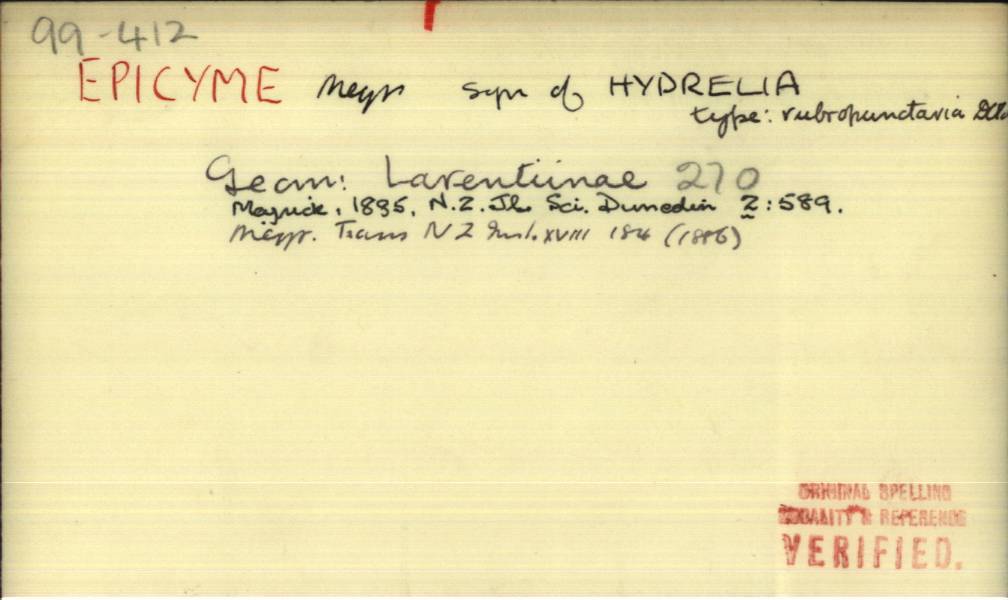 99-412
EPICYME Meyr syn of HYDRELIA
type: rubropunctaria Dbld
Geom: Larentiinae 270
Meyrick, 1885, N.Z. Jl. Sci. Dunedin 2:589.
Meyr. Trans NZ Inst. XVIII 184 (1886)
ORIGINAL SPELLING
LOCALITY & REFERENCE
VERIFIED.